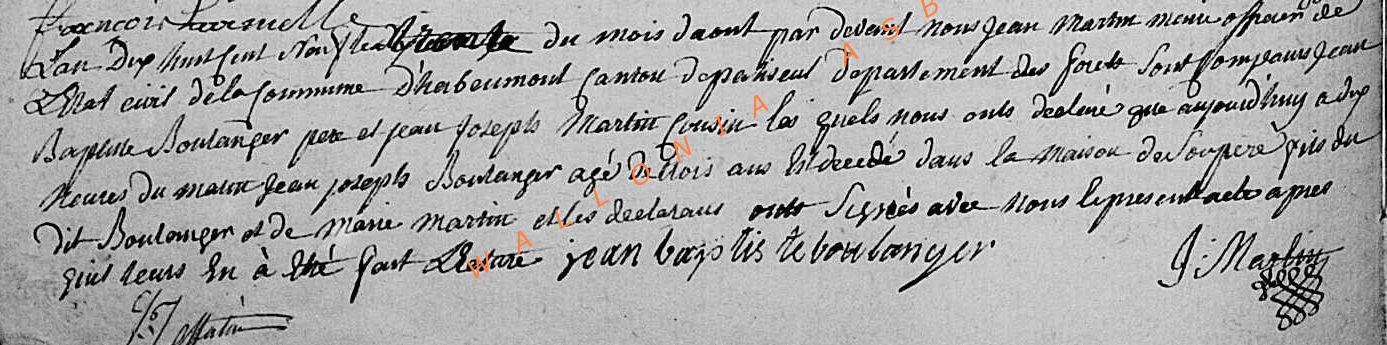 françois
L'an Dix huit Cent Neuf le trente du mois daout par devent nous Jean Martin maire officier de
L'Etat civil de la Commune D'herbeumont Canton depaliseul departement des forets Sont Comparus Jean
Baptiste Boulanger pere et jean Joseph Martin Cousin les quels nous onts declaré que aujourd'huy a dix
heures du matin Jean joseph Boulanger agé de trois ans Est decedé dans la maison de Son pere fils du
dit Boulanger et de Marie Martin et les declarans onts Signés avec nous le present acte apres
qu'il leurs En à Eté fait Lecture jean baptis te boulanger J: Martin
Martin
WALLONIA ASB